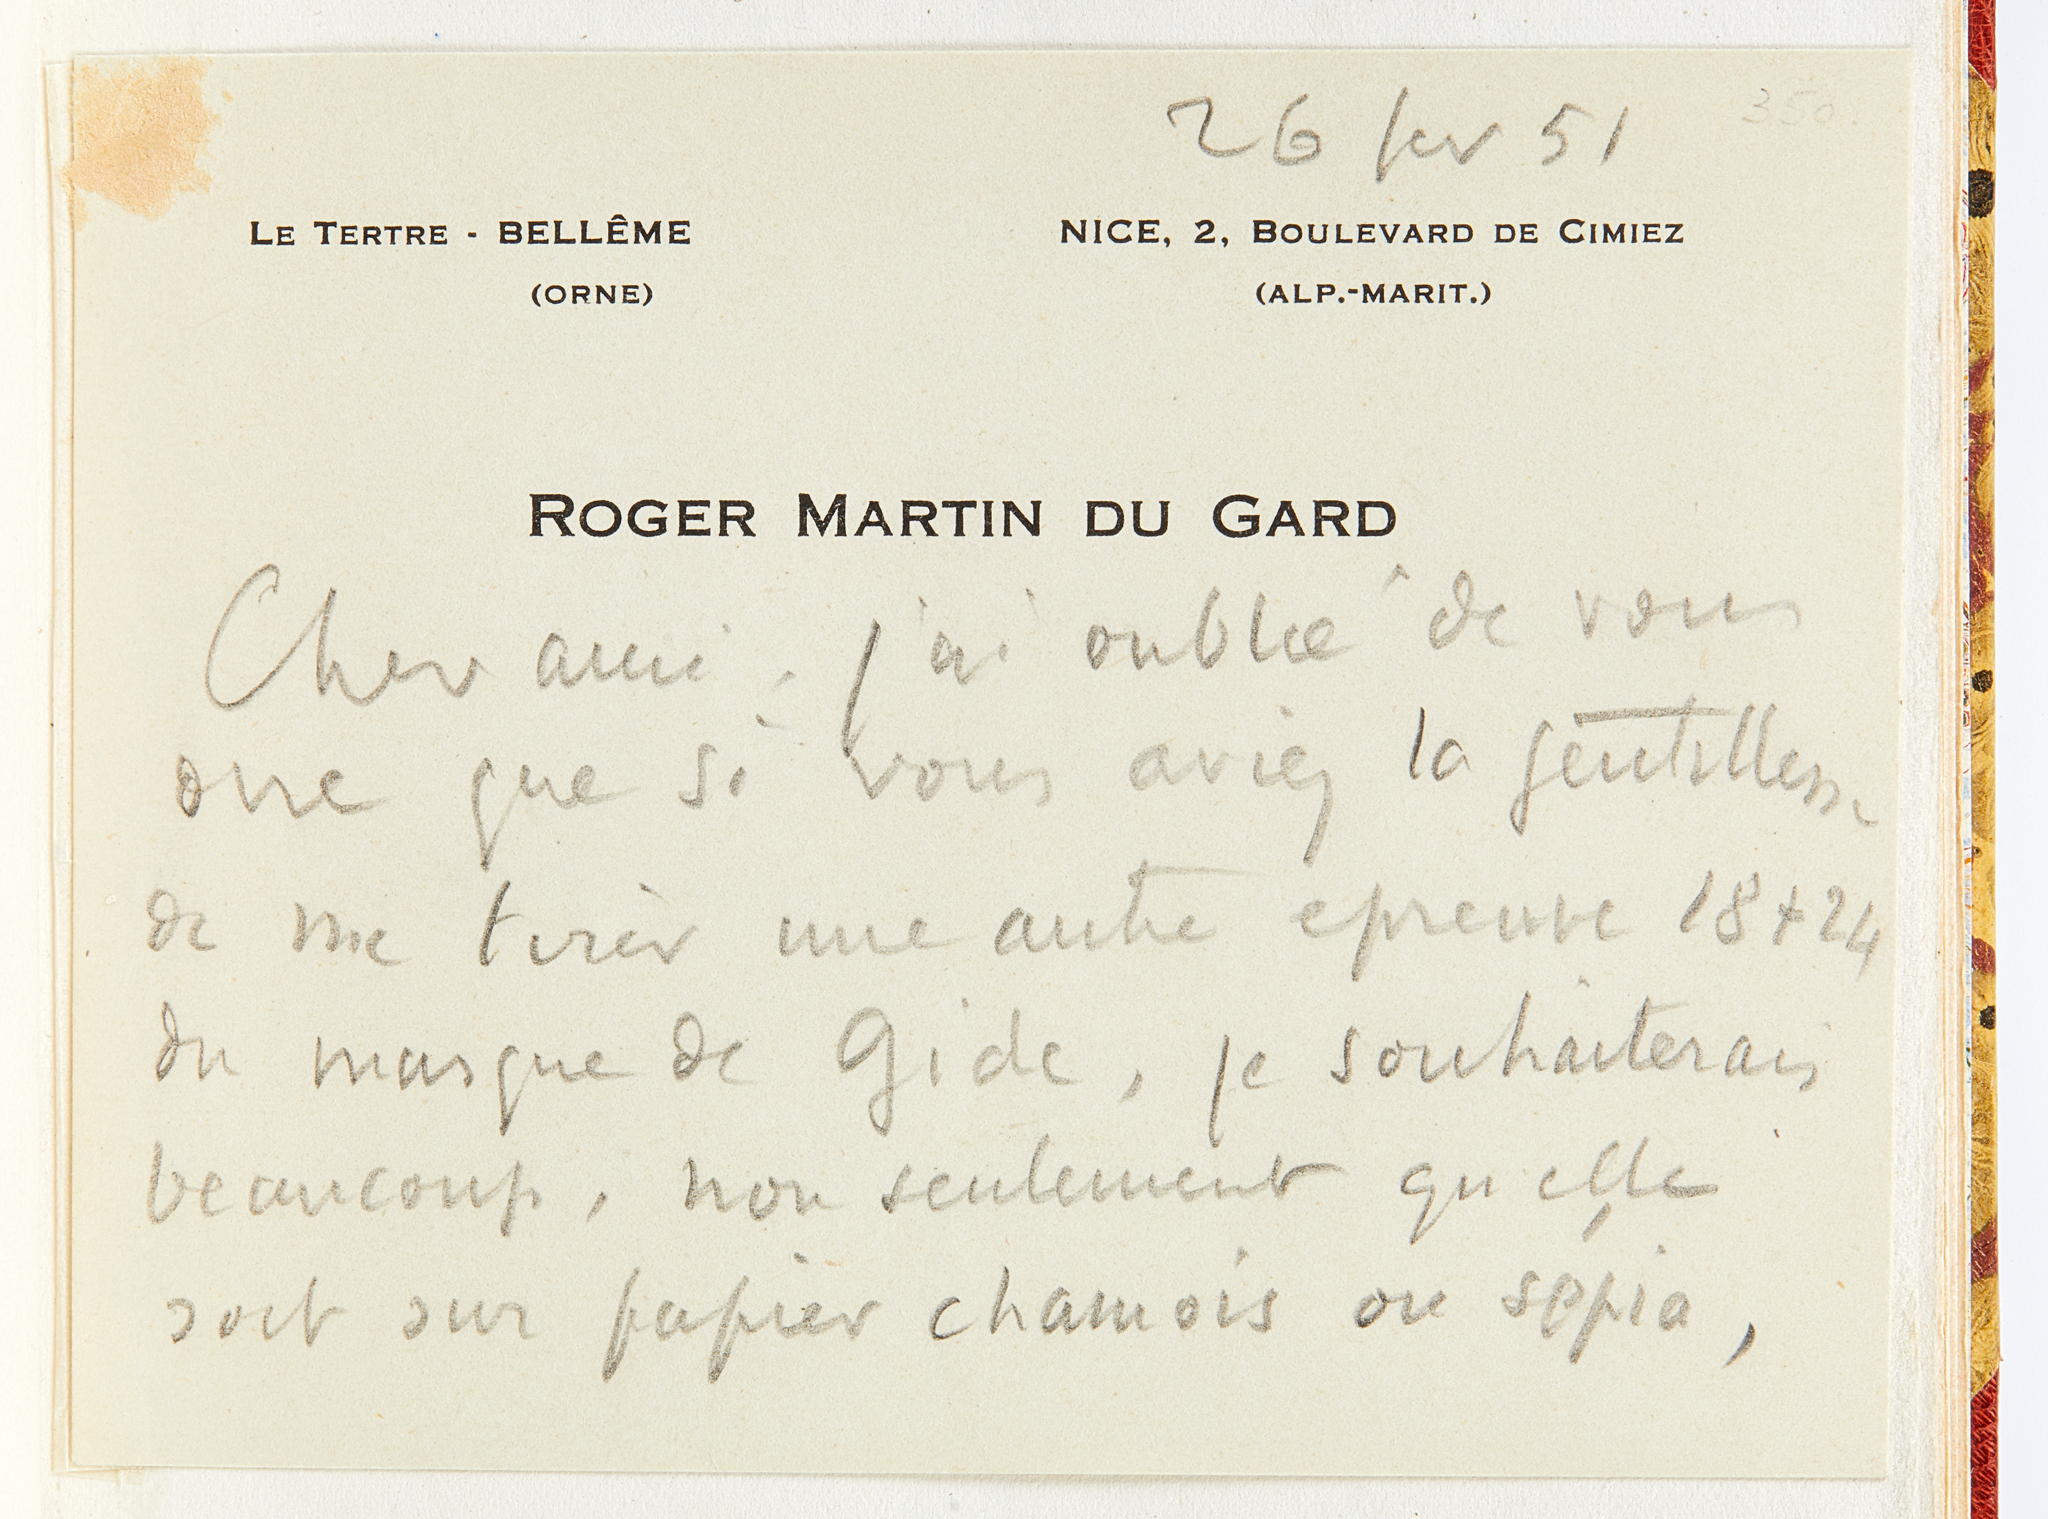 26 fev 51
350.
LE TERTRE - BELLÊME
(ORNE)
NICE, 2, BOULEVARD DE CIMIEZ
(ALP.-MARIT.)
ROGER MARTIN DU GARD
Cher ami, j'ai oublié de vous
dire que si vous aviez la gentillesse
de me tirer une autre epreuve 18+24
du masque de Gide, je souhaiterais
beaucoup, non seulement qu'elle
soit sur papier chamois ou sépia,